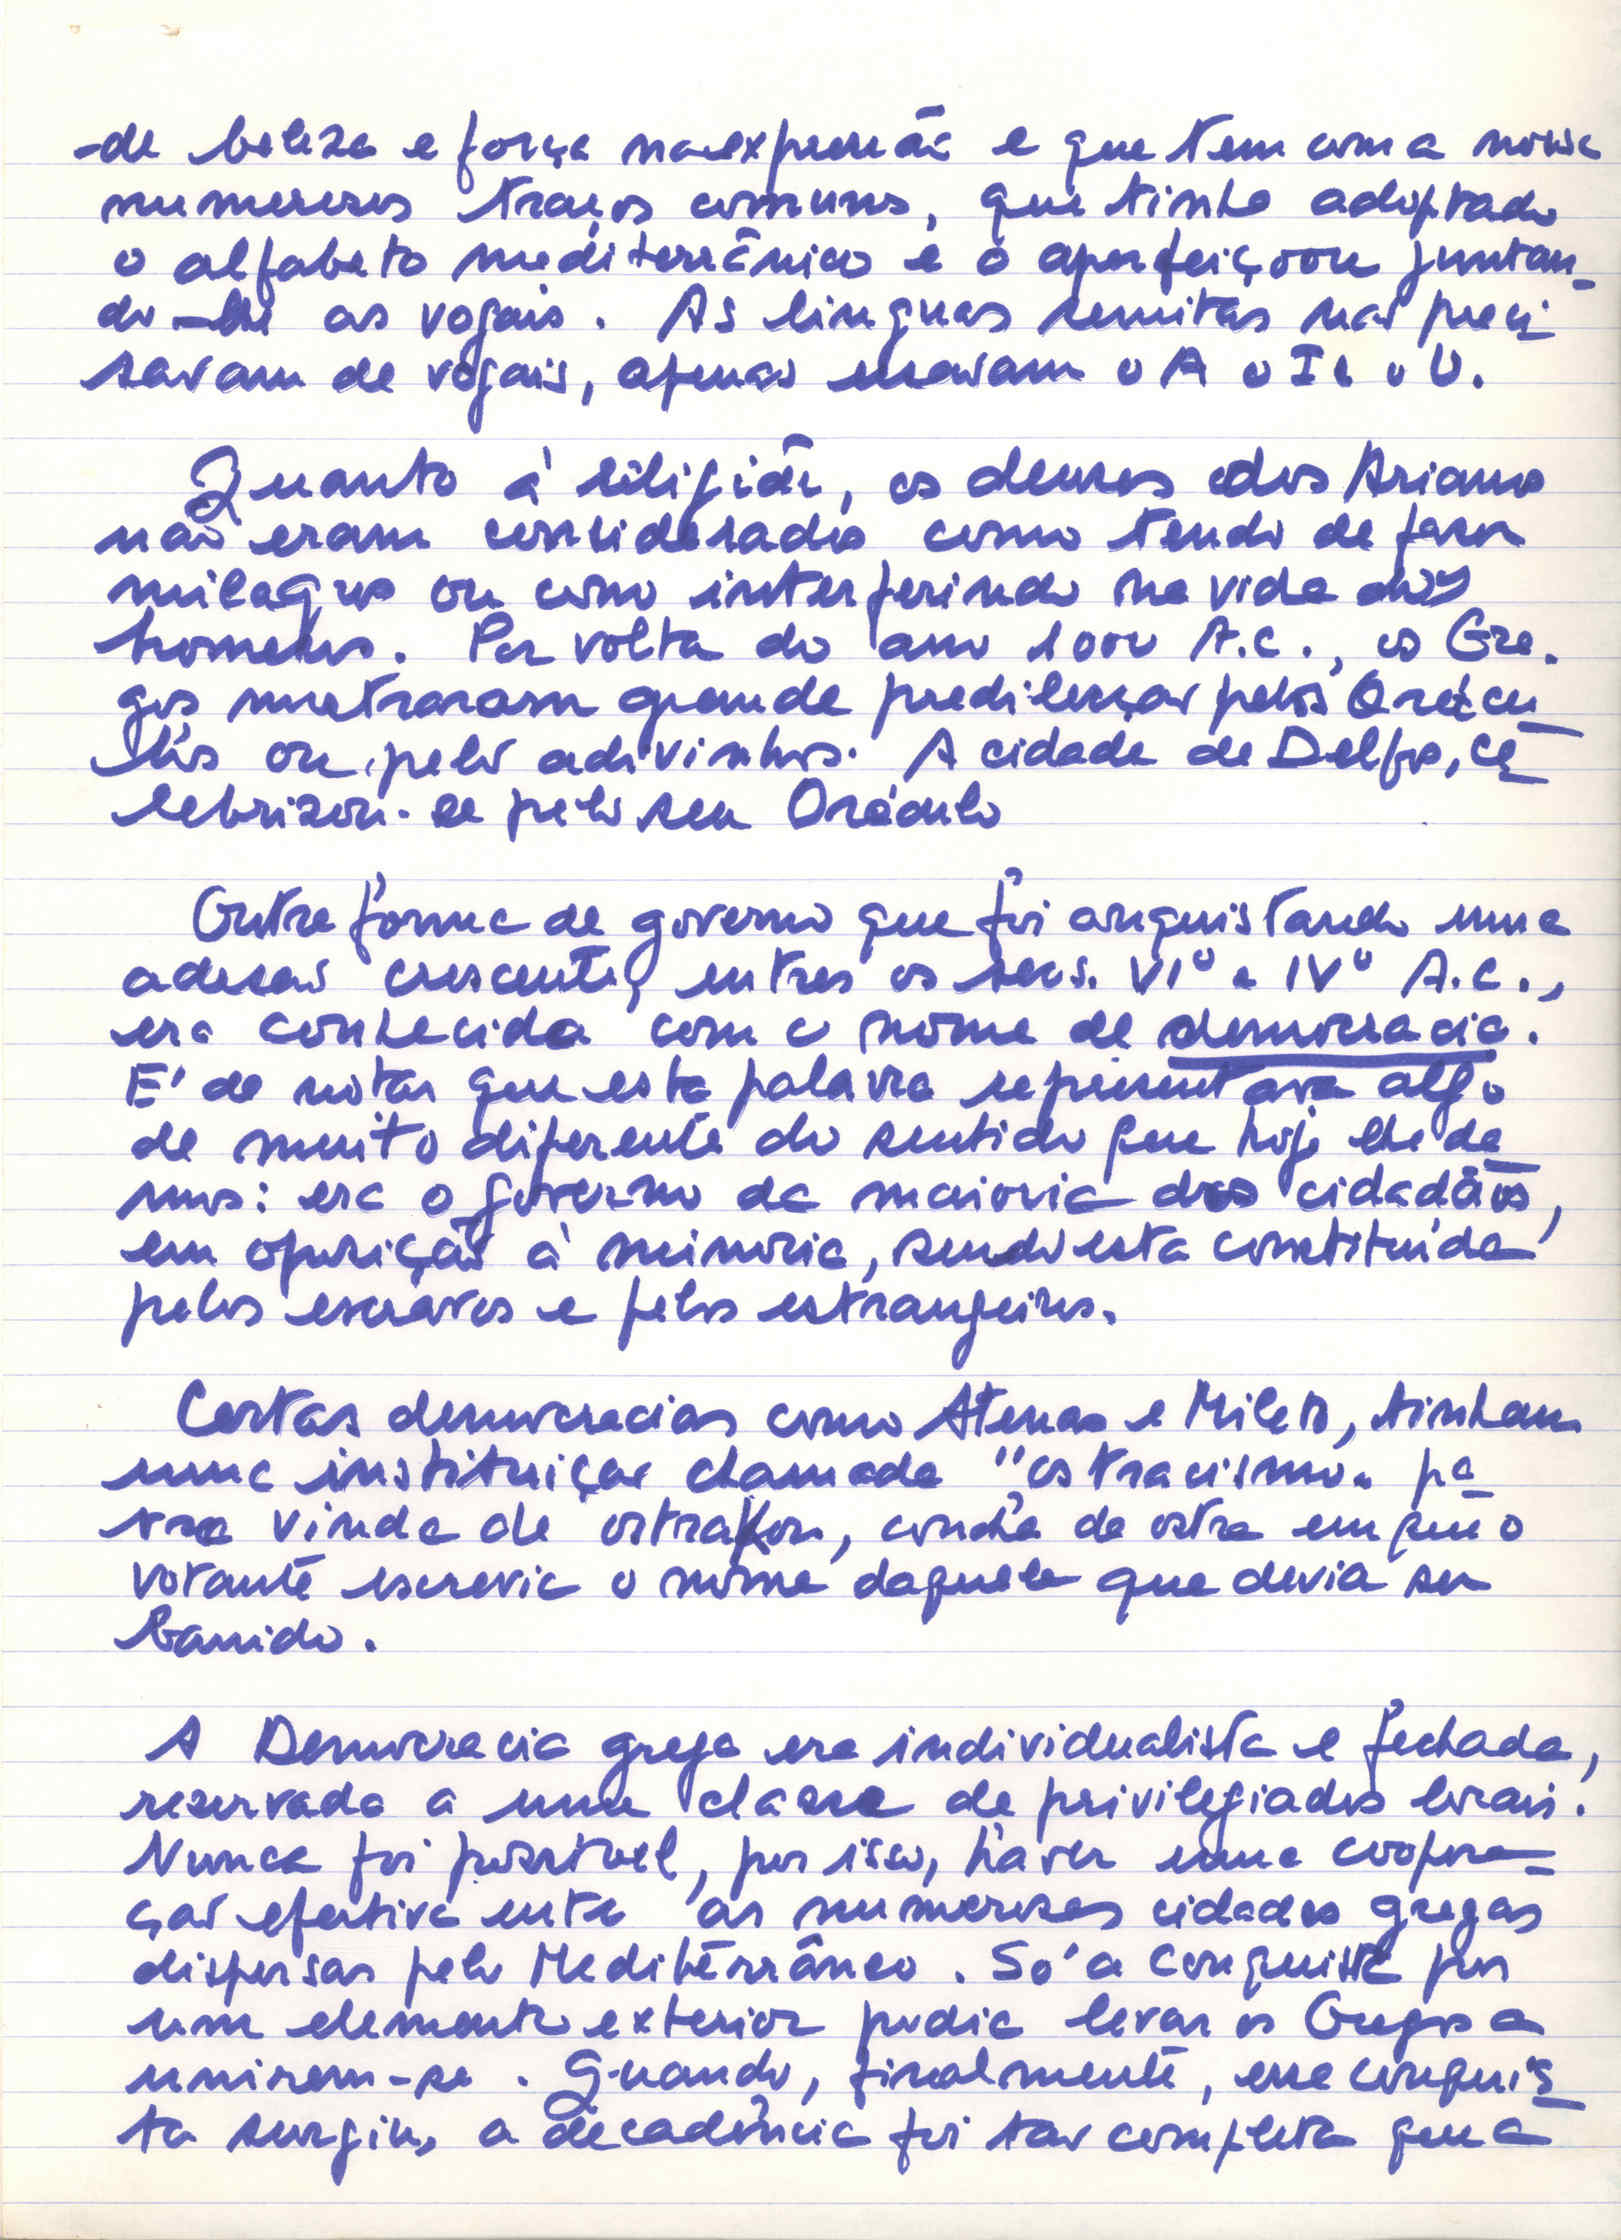 -de beleza e força na expressão e que tem com a nossa
numerosos traços comuns, que tinha adoptado
o alfabeto mediterrânico e o aperfeiçoou juntan-
do-lhe as vogais. As linguas semitas não preci-
savam de vogais, apenas usavam o A o I e o U.
Quanto à religião, os deuses dos Arianos
não eram considerados como tendo de fazer
milagres ou como interferindo na vida dos
homens. Por volta do ano 1000 A.C., os Gre-
gos mostraram grande predilecção pelos Orácu-
los ou pelos adivinhos. A cidade de Delfos, ce-
lebrizou-se pelo seu Oráculo
Outra forma de governo que foi conquistando uma
adesão crescente, entres os secs. VIº e IVº A.C.,
era conhecida com o nome de democracia.
E' de notar que esta palavra representava algo
de muito diferente do sentido que hoje lhe da-
mos: era o governo da maioria dos cidadãos,
em oposição à minoria, sendo esta constituída
pelos escravos e pelos estrangeiros.
Certas democracias como Atenas e Mileto, tinham
uma instituição chamada "ostracismo" pa-
vra vinda de ostrakon, concha de ostra em que o
votante escrevia o nome daquele que devia ser
banido.
A Democracia grega era individualista e fechada,
reservada a uma classe de privilegiados locais.
Nunca foi possível, por isso, haver uma coopera-
ção efectiva entre as numerosas cidades gregas
dispersas pelo Mediterrâneo. Só a conquista por
um elemento exterior podia levar os Gregos a
unirem-se. Quando, finalmente, essa conquis-
ta surgiu, a decadência foi tão completa que a